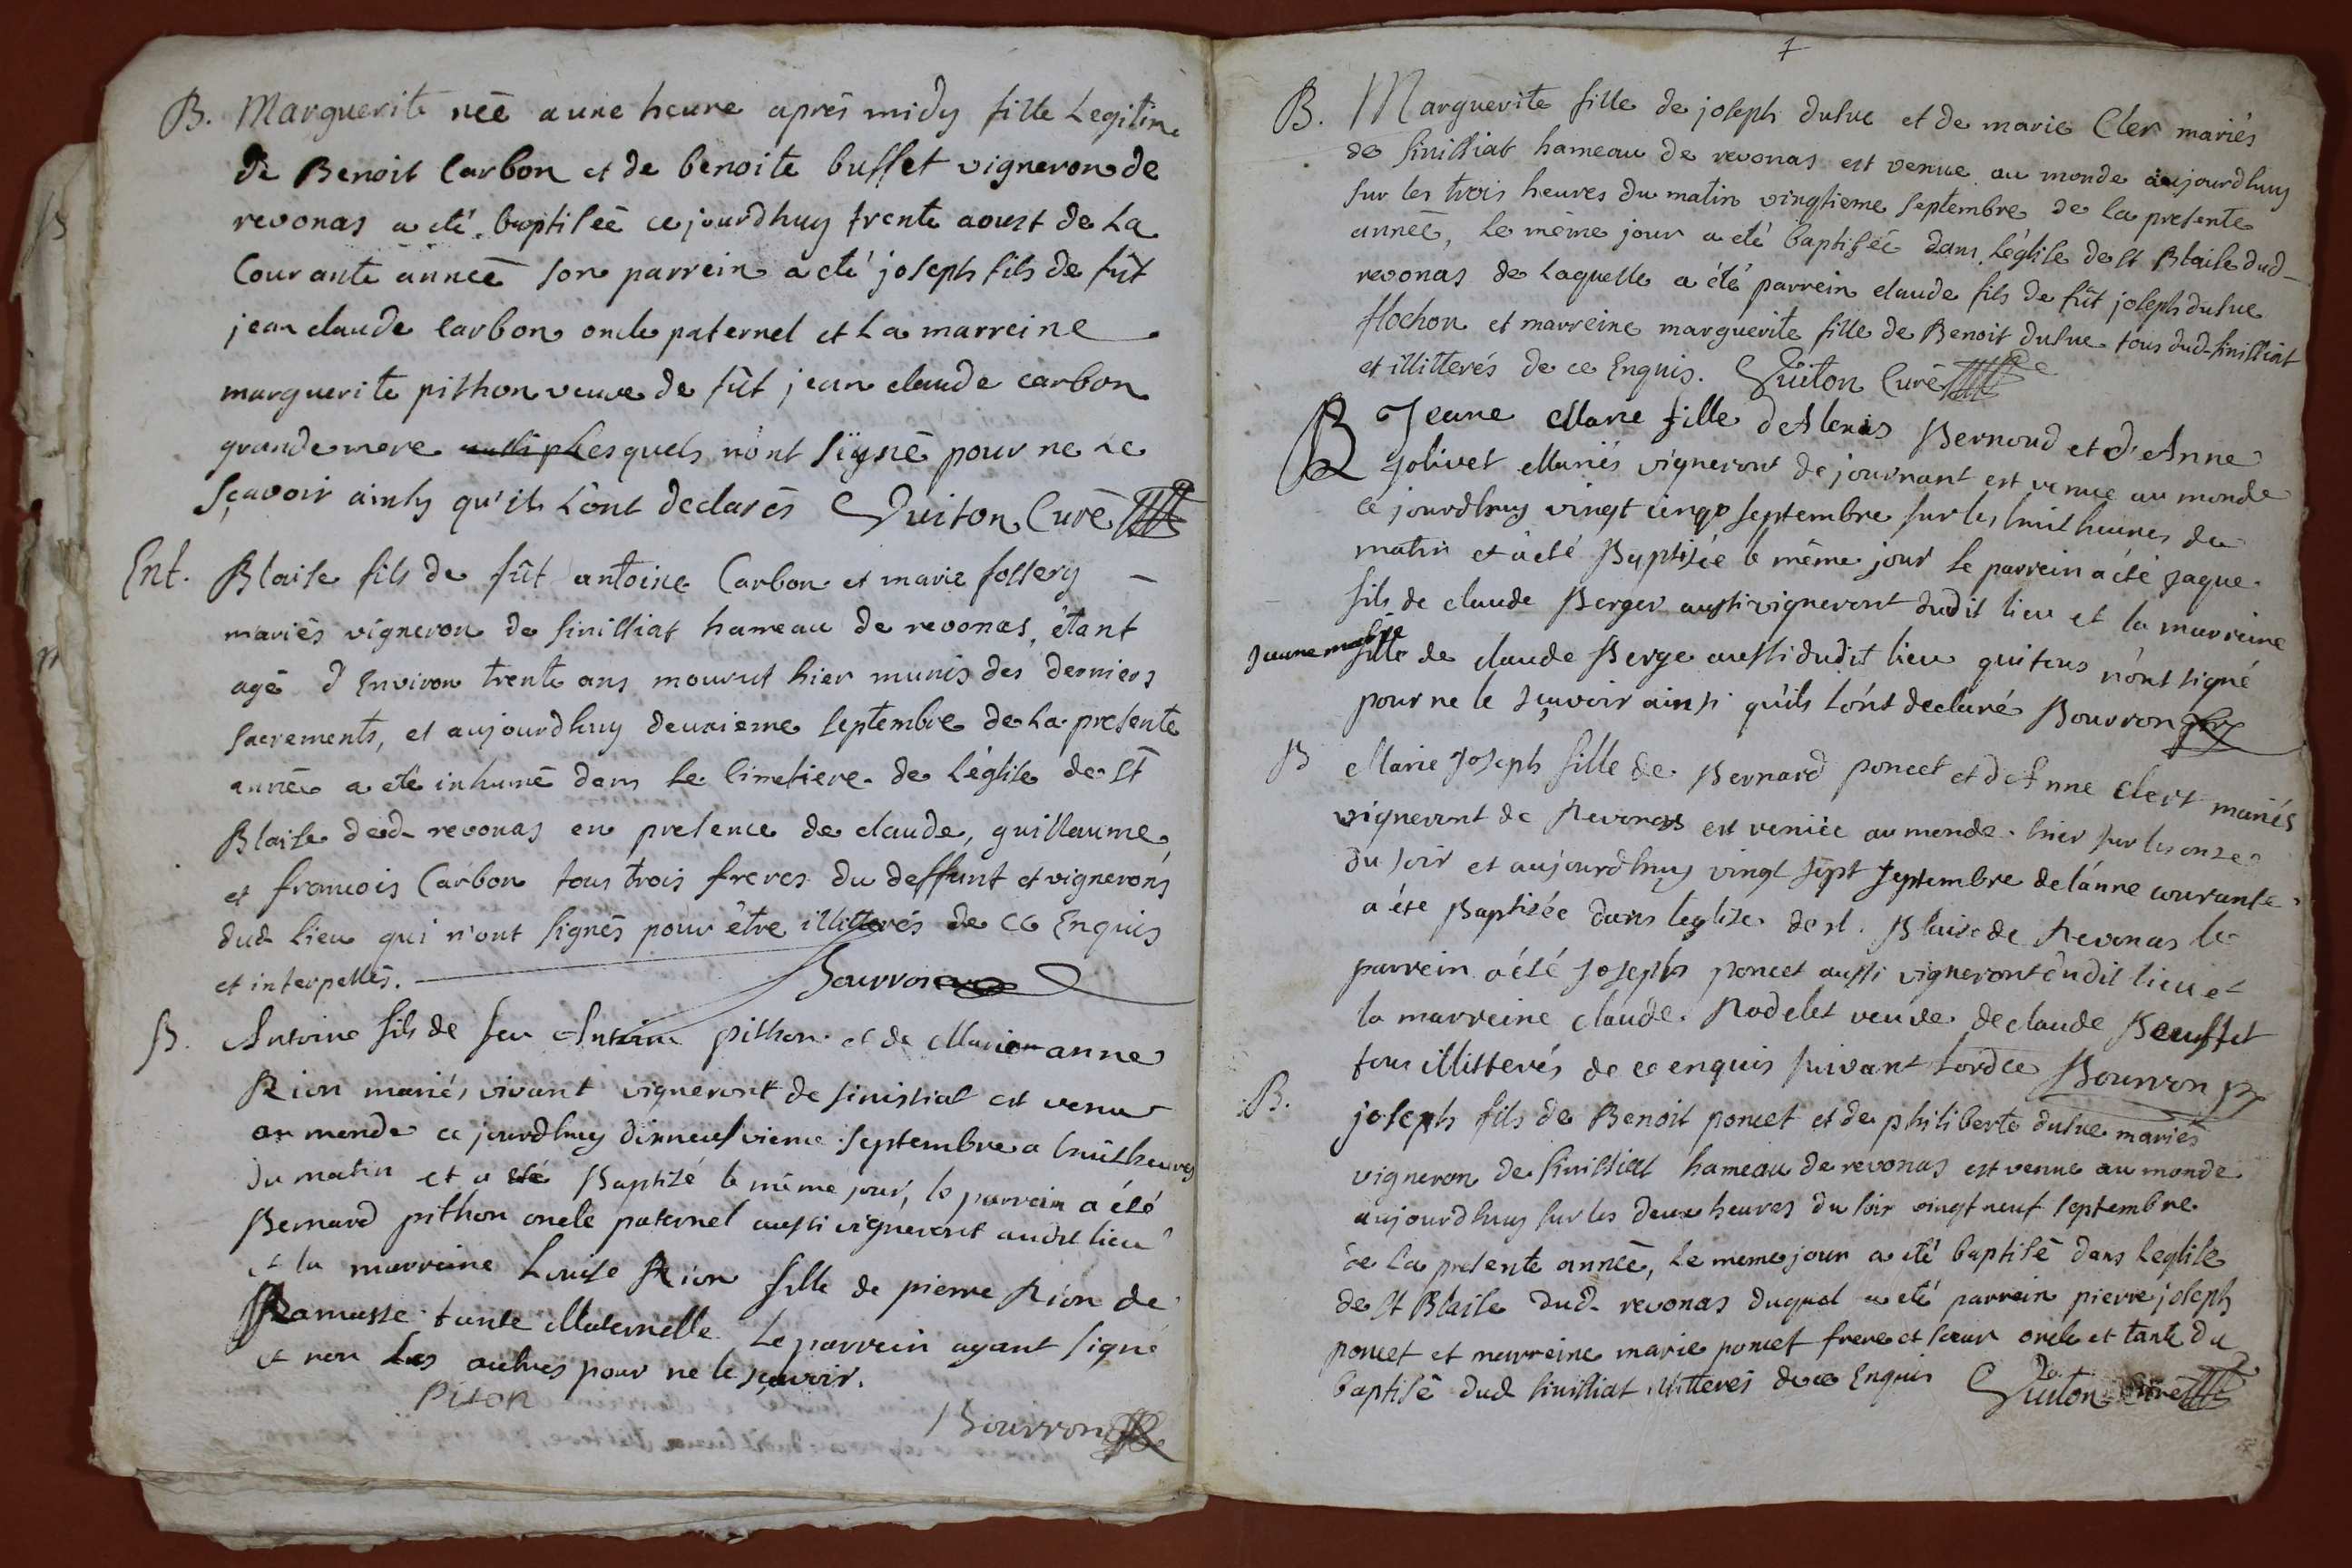 B. Marguerite neé a une heure aprés midy fille Legitime
de Benoit Carbon et de benoite buffet vigneron de
revonas a eté baptiseé ce jourdhuy trente aoust de La
Courante anneé son parrein a eté joseph fils de fût
jean claude Carbon oncle paternel et La marreine
marguerite pithon veuve de fût jean claude carbon
grande mere Lesquels n'ont signé pour ne Le
sçavoir ainsy qu'ils L'ont declarés Guiton Curé
Ent. Blaise fils de fût antoine Carbon et marie
mariés vigneron de sinissiat hameau de revonas, étant
agé d'Environ trente ans mourut hier munis des derniers
sacrements, et aujourdhuy deuxieme septembre de La presente
anneé a eté inhumé dans Le Cimetiere de L'église de St
Blaise dud revonas en presence de claude, guillaume
et francois Carbon tous trois freres du deffunt et vignerons
dud Lieu qui n'ont signés pour être illitterés de ce Enquis
et interpellés. Bourron
B. Antoine fils de feu Antoine pithon et de Marie anne
Rion mariés vivant vigneront de sinissiat est venu
au monde ce jourdhuy dixneufvieme septembre a huit heures
du matin et a eté Baptizé le même jour, le parrein a été
Bernard pithon oncle paternel aussi vigneront audit lieu
et la marreine Louise Rion fille de pierre Rion de
Ramasse tante Maternelle Le parrein ayant signé
et non Les autres pour ne le sçavoir.
Piton
Bourron
7
B. Marguerite fille de joseph dusuc et de marie Cler mariés
de sinissiat hameau de revonas est venue au monde aujourdhuy
sur les trois heures du matin vingtieme septembre de la presente
anneé, Le même jour a eté baptiseé dans L'église de St Blaise dud
revonas de Laquelle a été parrein claude fils de fût joseph dusuc
flochon et marreine marguerite fille de Benoit dusuc tous dud sinissiat
et illitterés de ce Enquis. Guiton Curé
B Jeane Marie fille d'Alexis Bernoud et d'Anne
Golivet Mariés vigneront de journant est venue au monde
ce jourdhuy vingt cinq septembre sur les huit heures du
matin et a eté Baptisée le même jour le parrein a été Jaque
fils de claude Berger aussi vigneront dudit lieu et la marreine
Jeanne marie fille de claude Berge aussi dudit lieu qui tous n'ont signé
pour ne le sçavoir ainsi qu'ils L'ont declaré Bourron
B Marie Joseph fille de Bernard poncet et d'Anne Clert mariés
vigneront de Revonas est veniée au monde hier sur les onze
du soir et aujourdhuy vingt sept septembre de l'anne courante
a éte Baptizée dans leglize de st. Blaise de Revonas le
parrein a été Joseph poncet aussi vigneront dudit lieu et
la marreine claude Rodelet veuve de claude Beuffet
tous illitterés de ce enquis suivant L'ordce Bourron
B. joseph fils de Benoit poncet et de philiberte dusuc mariés
vigneron de sinissiat hameau de revonas est venu au monde
aujourdhuy sur les deux heures du soir vingt neuf septembre
de La presente anneé, Le meme jour a eté baptisé dans L'eglise
de St Blaise dud revonas duquel a eté parrein pierre joseph
poncet et marreine marie poncet frere et soeur oncle et tante du
baptisé dud sinissiat illitterés de ce Enquis Guiton Curé